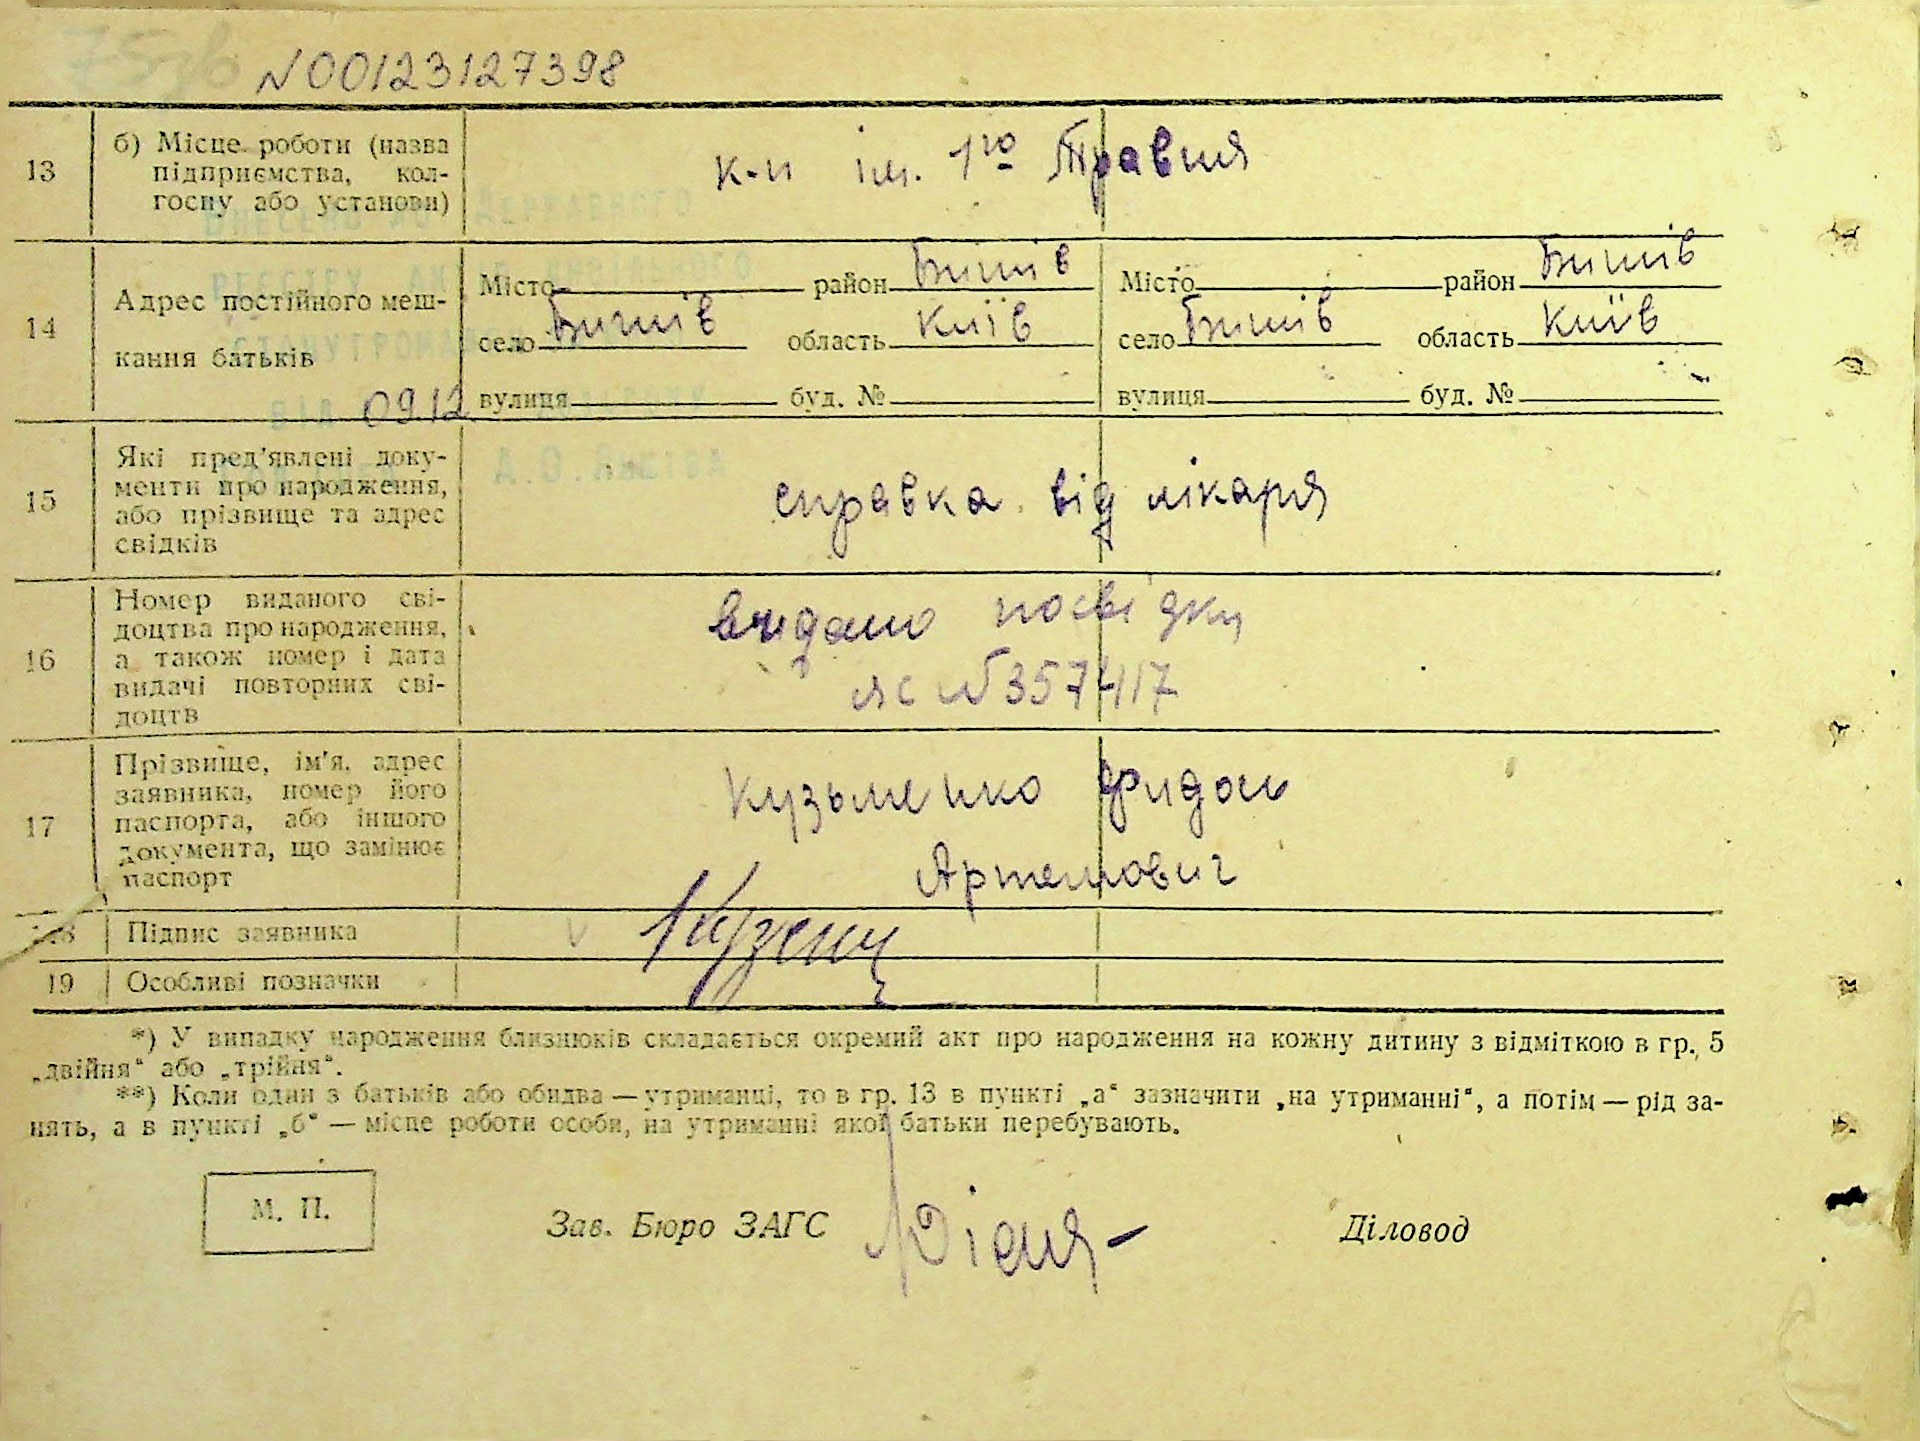 N00123127398
13 б) Місце роботи (назва к-п ім. 1го Травня
підприємства, кол-
госпу або установи)
14 Адрес постійного меш-
кання батьків
Місто район Бишів Місто район Бишів
село Бишів область Київ село Бишів область Київ
вулиця буд. № вулиця буд. №
ВНЕСЕНО ДО ДЕРЖАВНОГО
РЕЄСТРУ АКТІВ ЦИВІЛЬНОГО
СТАНУ ГРОМАДЯН
ВІД 09.12
15 Які пред'явлені доку-
менти про народження,
або прізвище та адрес
свідків
справка від лікаря
16 Номер виданого сві-
доцтва про народження,
а також номер і дата
видачі повторних сві-
доцтв
видано посвідку
ЯС № 357417
17 Прізвище, ім'я, адрес
заявника, номер його
паспорта, або іншого
документа, що замінює
паспорт
Кузьменко Фидось
Артемович
18 Підпис заявника
19 Особливі позначки
*) У випадку народження близнюків складається окремий акт про народження на кожну дитину з відміткою в гр. 5
„двійня“ або „трійня“.
**) Коли один з батьків або обидва — утриманці, то в гр. 13 в пункті „а“ зазначити „на утриманні“, а потім — рід за-
нять, а в пункті „б“ — місце роботи особи, на утриманні якої батьки перебувають.
М. П. Зав. Бюро ЗАГС Діловод